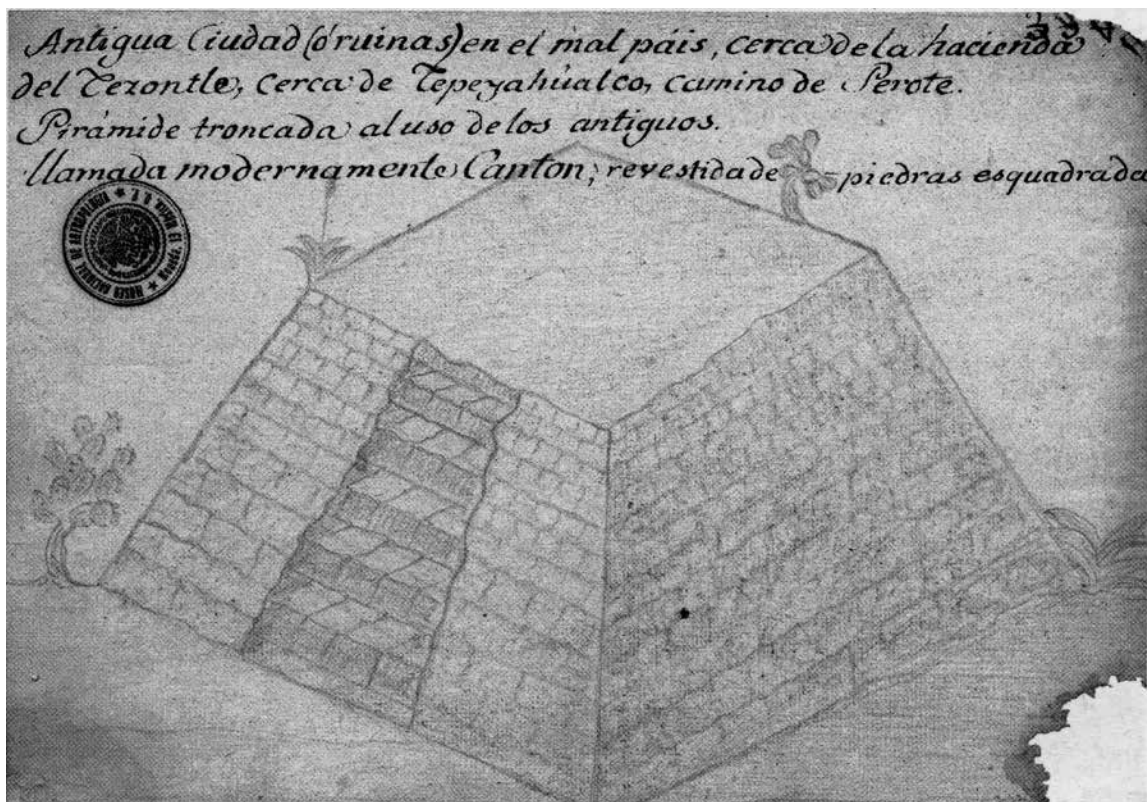 Antigua Ciudad (ó ruinas) en el mal páis, cerca de la hacienda
del Tezontle, cerca de Tepeyahùalco, camino de Perote.
Pirámide troncada al uso de los antiguos.
llamada modernamente Canton; revestida de piedras esquadrada
MUSEO NACIONAL DE ANTROPOLOGIA